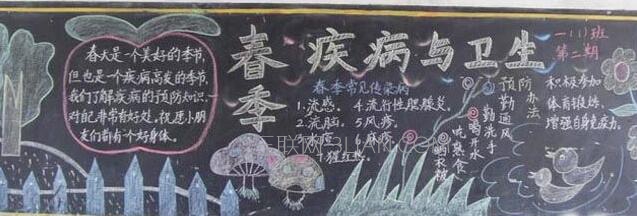 春季
疾病与卫生
一(1)班
第二期
春天是一个美好的季节,
但也是一个疾病高发的季节,
我们了解疾病的预防知识,
对配非常有好处。祝愿小朋
友们都有个好身体。
春季常见传染病
1.流感。
2.流脑。
3.水痘
4.流行性腮腺炎。
5.风疹。
6.麻疹。
7.猩红热。
预防办法
勤通风
勤洗手
喝开水
吃熟食
晒衣被
积极参加
体育锻炼,
增强自身免疫力。